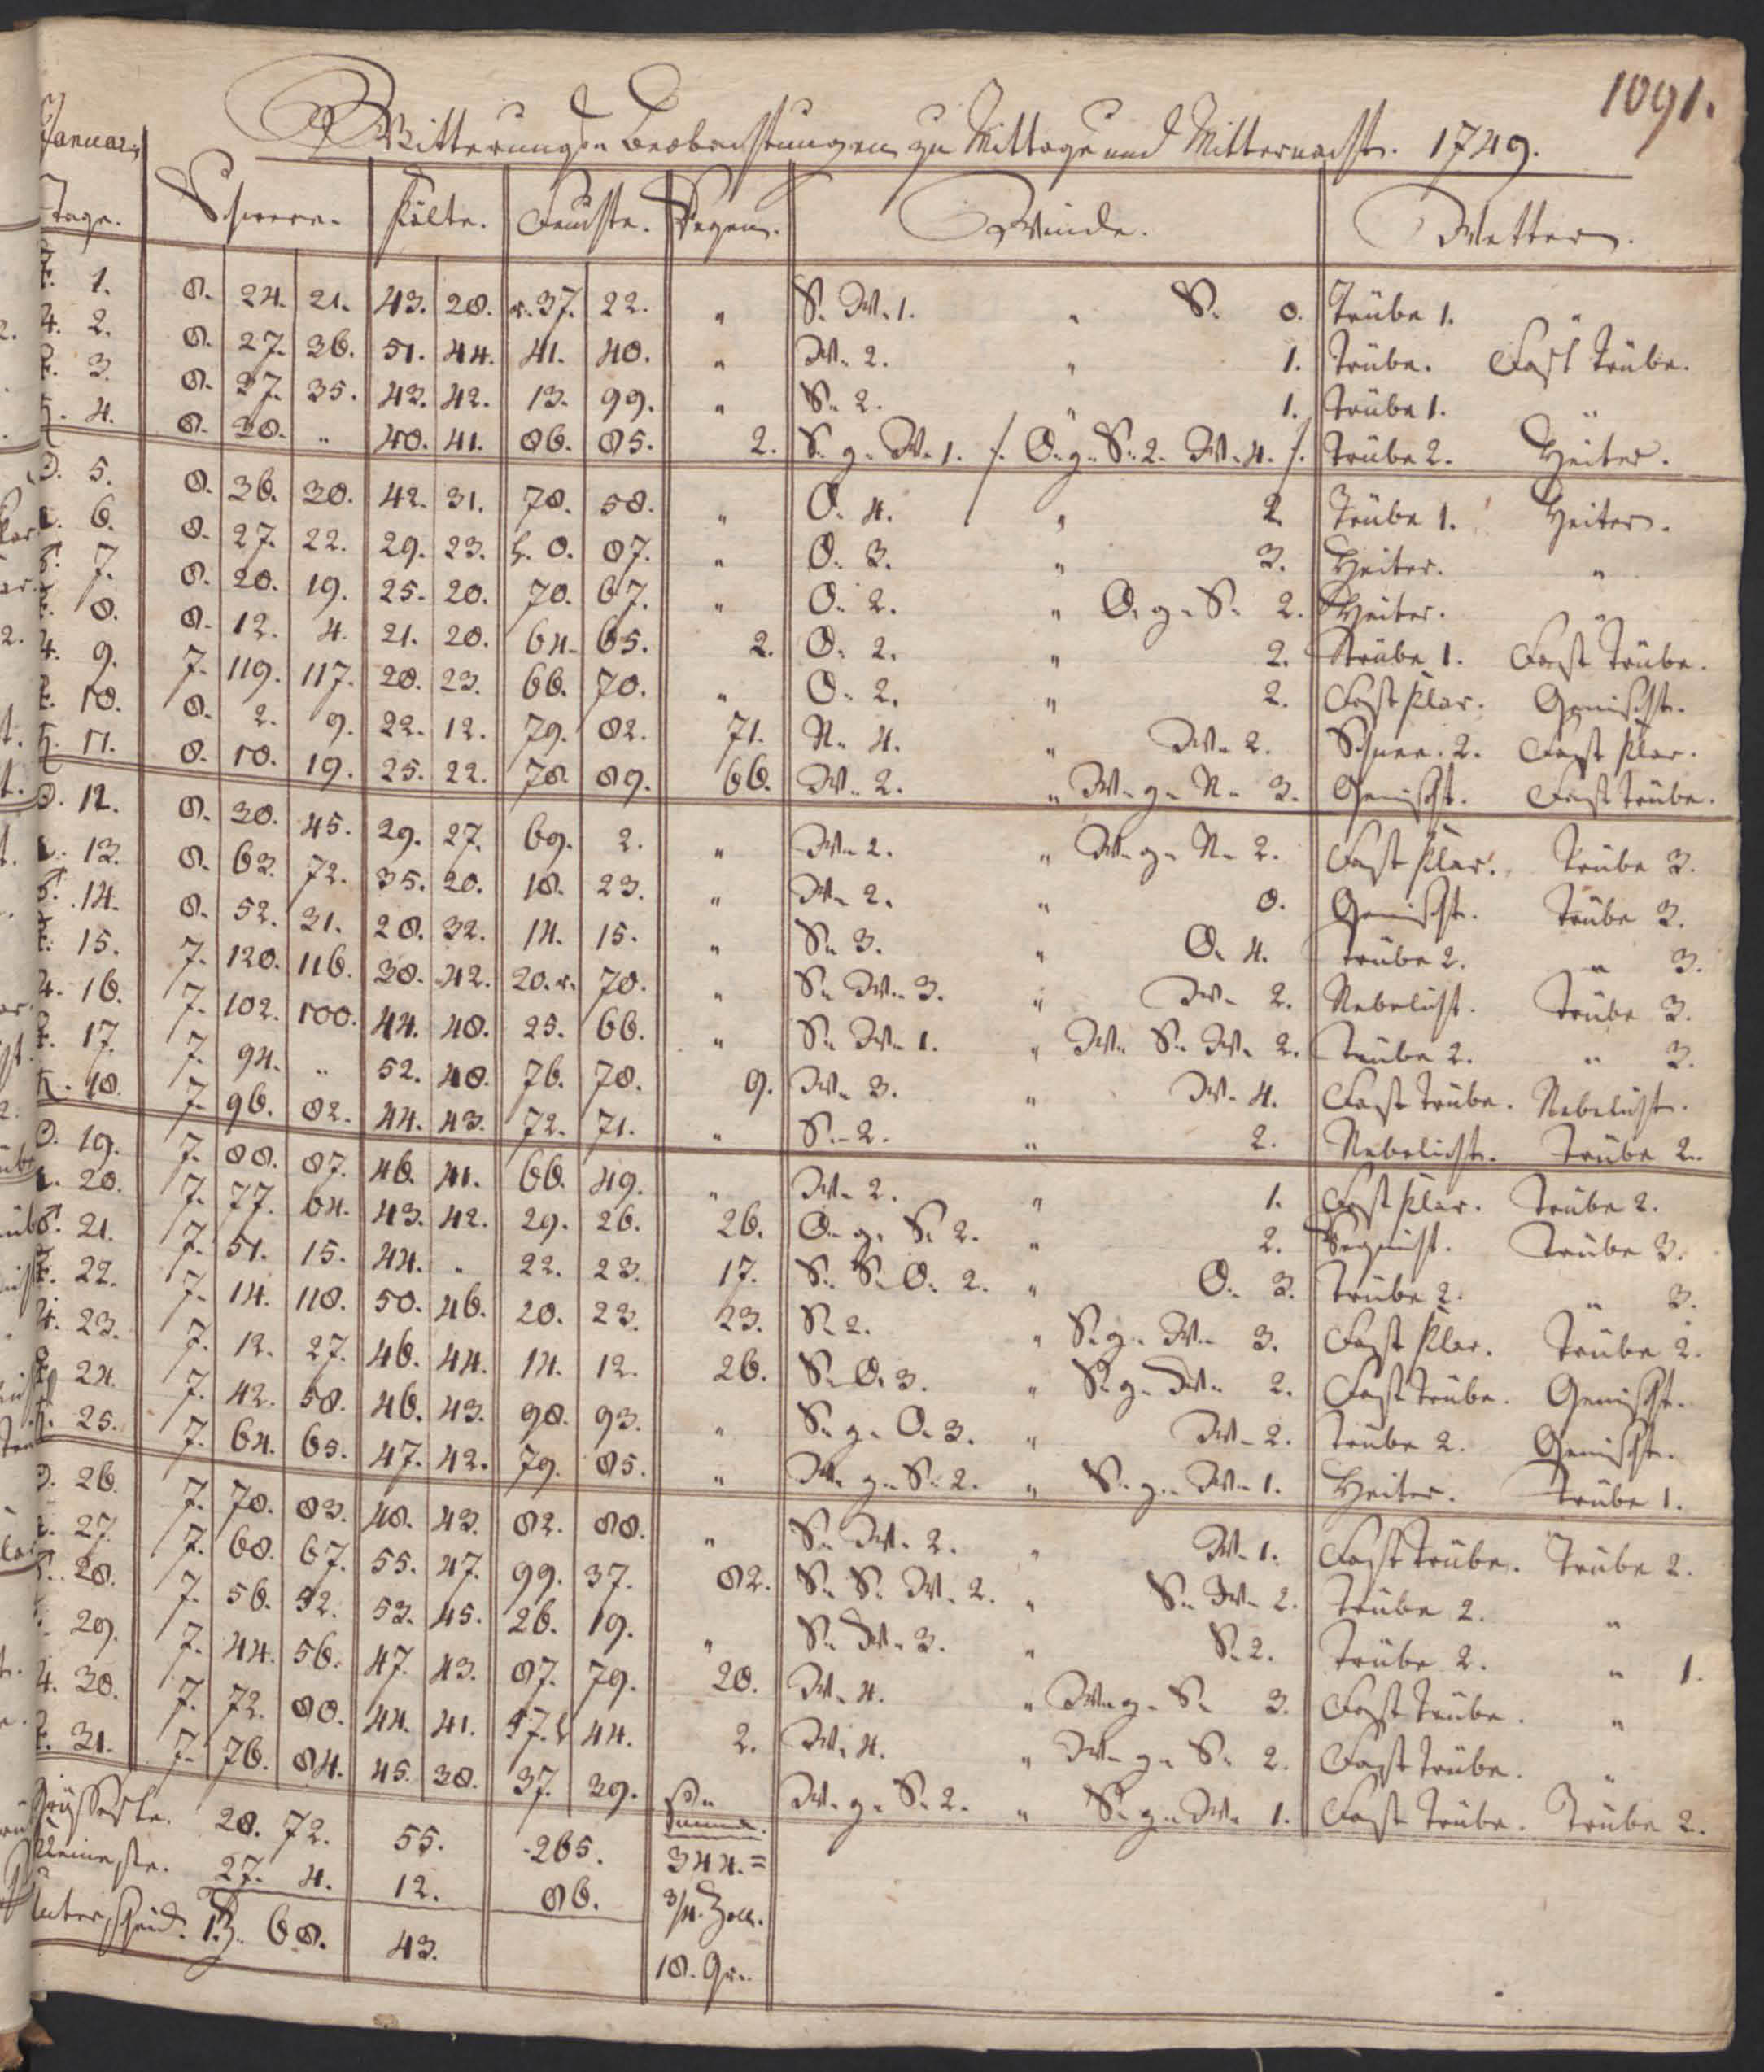 1091.
Januar.
Witterungs-Beobachtungen zu Mittage und Mitternacht. 1749.
Tage. Schwere. Kälte. Feuchte. Regen. Winde. Wetter.
☿. 1. 8. 24. 21. 43. 28. r. 37. 22. " S. W. 1. " S. 0. Trübe 1. "
♃. 2. 8. 27. 36. 51. 44. 41. 40. " W. 2. " 1. Trübe. Fast Trübe.
♀. 3. 8. 37. 35. 43. 42. 13. 99. " S. 2. " 1. Trübe 1. "
♄. 4. 8. 38. " 40. 41. 86. 85. 2. S. g. W. 1. /. O. g. S. 2. W. 4. /. Trübe 2. Heiter.
☉. 5. 8. 36. 30. 42. 31. 78. 58. " O. 4. " 2 Trübe 1. Heiter.
☾. 6. 8. 27. 22. 29. 23. h. 0. 87. " O. 3. " 3. Heiter. "
♂. 7. 8. 20. 19. 25. 20. 70. 67. " O. 2. " O. g. S. 2. Heiter. "
☿. 8. 8. 12. 4. 21. 20. 64. 65. 2. O. 2. " 2. Trübe 1. Fast Trübe.
♃. 9. 7. 119. 117. 20. 23. 66. 70. " O. 2. " 2. Fast klar. Gemischt.
♀. 10. 8. 2. 9. 22. 12. 79. 82. 71. N. 4. " W. 2. Schnee. 2. Fast klar.
♄. 11. 8. 10. 19. 25. 22. 78. 89. 66. W. 2. " W. g. N. 3. Gemischt. Fast trübe.
☉. 12. 8. 30. 45. 29. 27. 69. 2. " W. 2. " W. g. N. 2. Fast klar. Trübe 3.
☾. 13. 8. 63. 72. 35. 20. 18. 23. " W. 2. " 0. Gemischt. Trübe 3.
♂. 14. 8. 52. 31. 28. 32. 14. 15. " S. 3. " O. 4. Trübe 2. " 3.
☿. 15. 7. 120. 116. 38. 42. 20. r. 70. " S. W. 3. " W. 2. Nebelicht. Trübe 3.
♃. 16. 7. 102. 100. 44. 48. 25. 66. " S. W. 1. " W. S. W. 2. Trübe 2. " 3.
♀. 17. 7. 94. " 52. 48. 76. 78. 9. W. 3. " W. 4. Fast trübe. Nebelicht.
♄. 18. 7. 96. 82. 44. 43. 72. 71. " S. 2. " 2. Nebelicht. Trübe 2.
☉. 19. 7. 88. 87. 46. 41. 66. 49. " W. 2. " 1. Fast klar. Trübe 2.
☾. 20. 7. 77. 64. 43. 42. 29. 26. 26. O. g. S. 2. " 2. Regnicht. Trübe 3.
♂. 21. 7. 51. 15. 44. " 22. 23. 17. S. S. O. 2. " O. 3. Trübe 2. " 3.
☿. 22. 7. 14. 118. 50. 46. 20. 23. 23. S. 2. " S. g. W. 3. Fast klar. Trübe 2.
♃. 23. 7. 12. 27. 46. 44. 14. 12. 26. S. O. 3. " S. g. W. 2. Fast trübe. Gemischt.
♀ 24. 7. 42. 58. 46. 43. 98. 93. " S. g. O. 3. " W. 2. Trübe 2. Gemischt.
♄. 25. 7. 64. 65. 47. 42. 79. 85. " W. g. S. 2. " S. g. W. 1. Heiter. Trübe 1.
☉. 26. 7. 78. 83. 48. 43. 82. 88. " S. W. 2. " W. 1. Fast trübe. Trübe 2.
☾. 27. 7. 68. 67. 55. 47. 99. 37. 82. S. S. W. 2. " S. W. 2. Trübe 2. "
♂. 28. 7. 56. 52. 53. 45. 26. 19. " S. W. 3. " S. 2. Trübe 2. " 1.
29. 7. 44. 56. 47. 43. 87. 79. 20. W. 4. " W. g. S. 3. Fast Trübe. "
♃. 30. 7. 72. 80. 44. 41. 57. h 44. 2. W. 4. " W. g. S. 2. Fast Trübe. "
♀. 31. 7. 76. 84. 45. 38. 37. 39. W. g. S. 2. " S. g. W. 1. Fast Trübe. Trübe 2.
Grösseste. 28. 72. 55. 265. Summa. 344. =
Kleineste. 27. 4. 12. 86. 3/4. Zoll.
Unterscheid. 1. Z. 68. 43. 18. Gr.